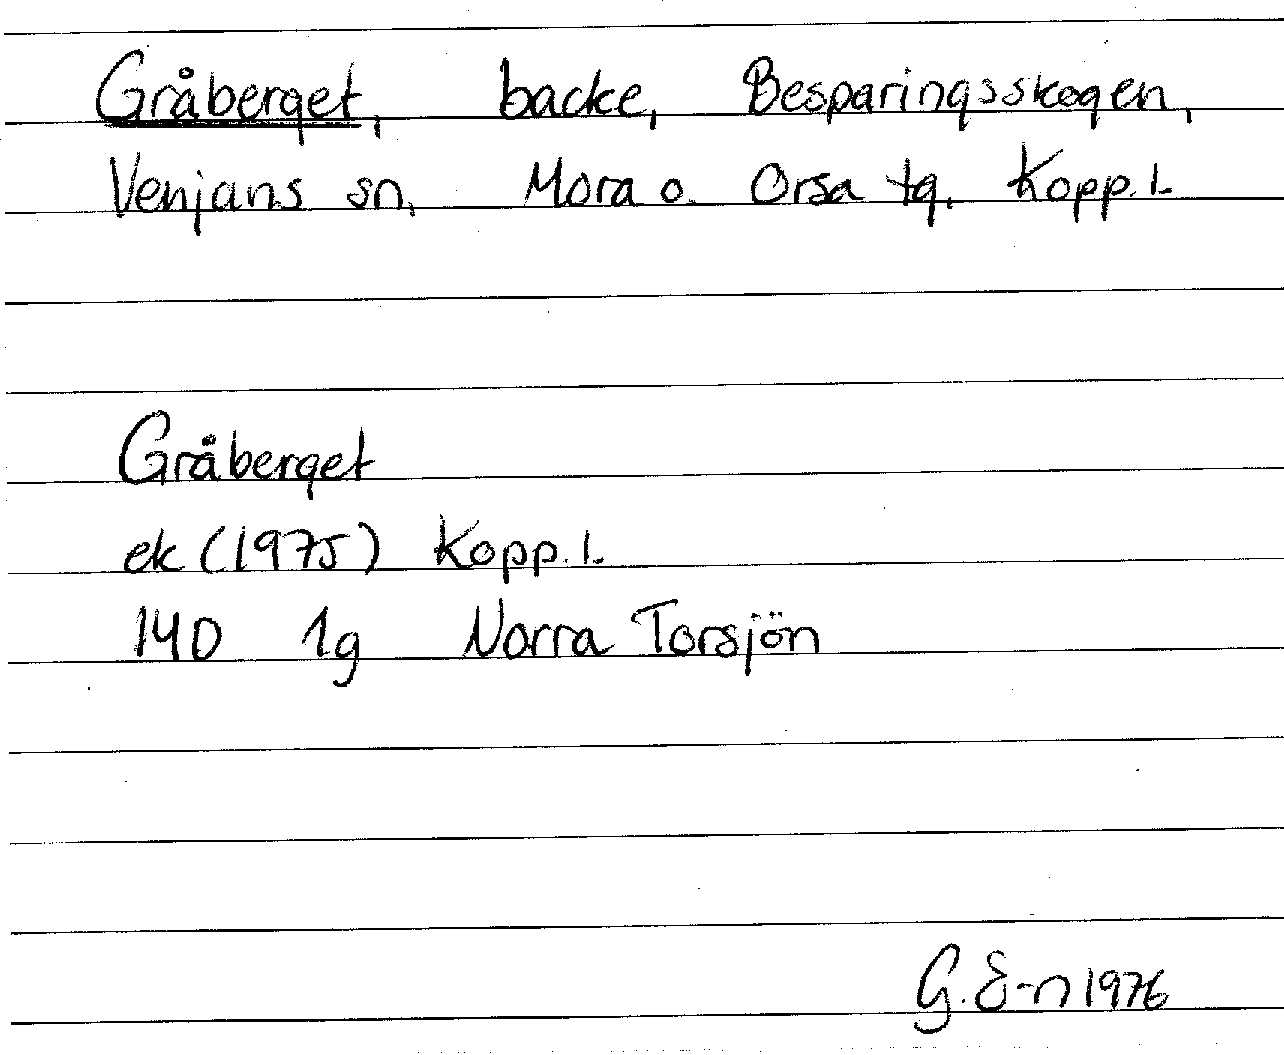 Gråberget, backe, Besparingsskogen,
Venjans sn, Mora o. Orsa tg. Kopp. l.
Gråberget
ek (1975) Kopp. l.
14D 1g Norra Torsjön
G. E-n 1976